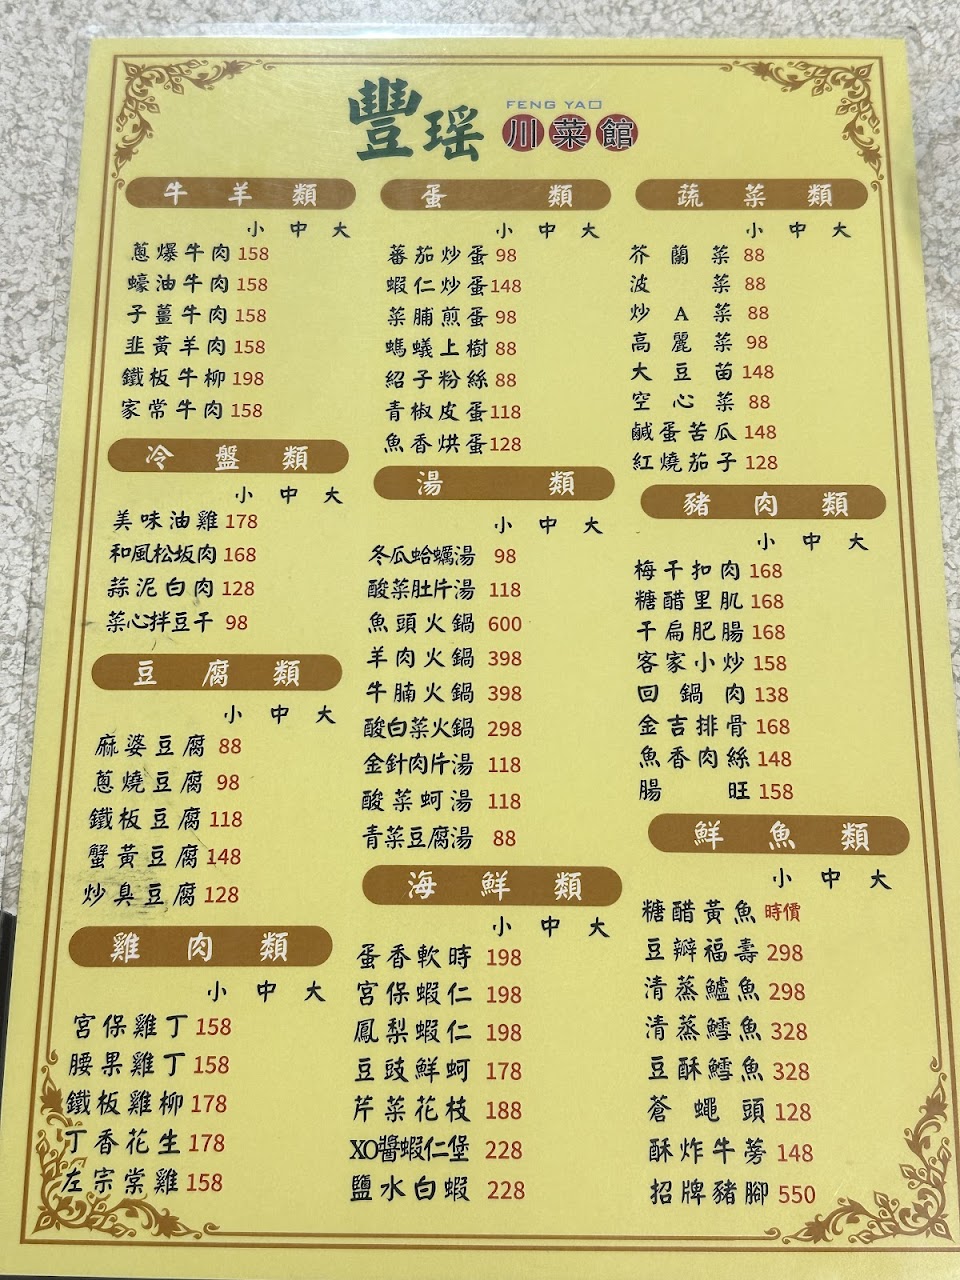 豐瑤
FENG YAO
川菜館
牛羊類
小 中 大
蔥爆牛肉 158
蠔油牛肉 158
子薑牛肉 158
韭黃羊肉 158
鐵板牛柳 198
家常牛肉 158
冷盤類
小 中 大
美味油雞 178
和風松坂肉 168
蒜泥白肉 128
菜心拌豆干 98
豆腐類
小 中 大
麻婆豆腐 88
蔥燒豆腐 98
鐵板豆腐 118
蟹黃豆腐 148
炒臭豆腐 128
雞肉類
小 中 大
宮保雞丁 158
腰果雞丁 158
鐵板雞柳 178
丁香花生 178
左宗棠雞 158
蛋類
小 中 大
蕃茄炒蛋 98
蝦仁炒蛋 148
菜脯煎蛋 98
螞蟻上樹 88
紹子粉絲 88
青椒皮蛋 118
魚香烘蛋 128
湯類
小 中 大
冬瓜蛤蠣湯 98
酸菜肚片湯 118
魚頭火鍋 600
羊肉火鍋 398
牛腩火鍋 398
酸白菜火鍋 298
金針肉片湯 118
酸菜蚵湯 118
青菜豆腐湯 88
海鮮類
小 中 大
蛋香軟時 198
宮保蝦仁 198
鳳梨蝦仁 198
豆豉鮮蚵 178
芹菜花枝 188
XO醬蝦仁堡 228
鹽水白蝦 228
蔬菜類
小 中 大
芥蘭菜 88
波菜 88
炒A菜 88
高麗菜 98
大豆苗 148
空心菜 88
鹹蛋苦瓜 148
紅燒茄子 128
豬肉類
小 中 大
梅干扣肉 168
糖醋里肌 168
干扁肥腸 168
客家小炒 158
回鍋肉 138
金吉排骨 168
魚香肉絲 148
腸旺 158
鮮魚類
小 中 大
糖醋黃魚 時價
豆瓣福壽 298
清蒸鱸魚 298
清蒸鱈魚 328
豆酥鱈魚 328
蒼蠅頭 128
酥炸牛蒡 148
招牌豬腳 550